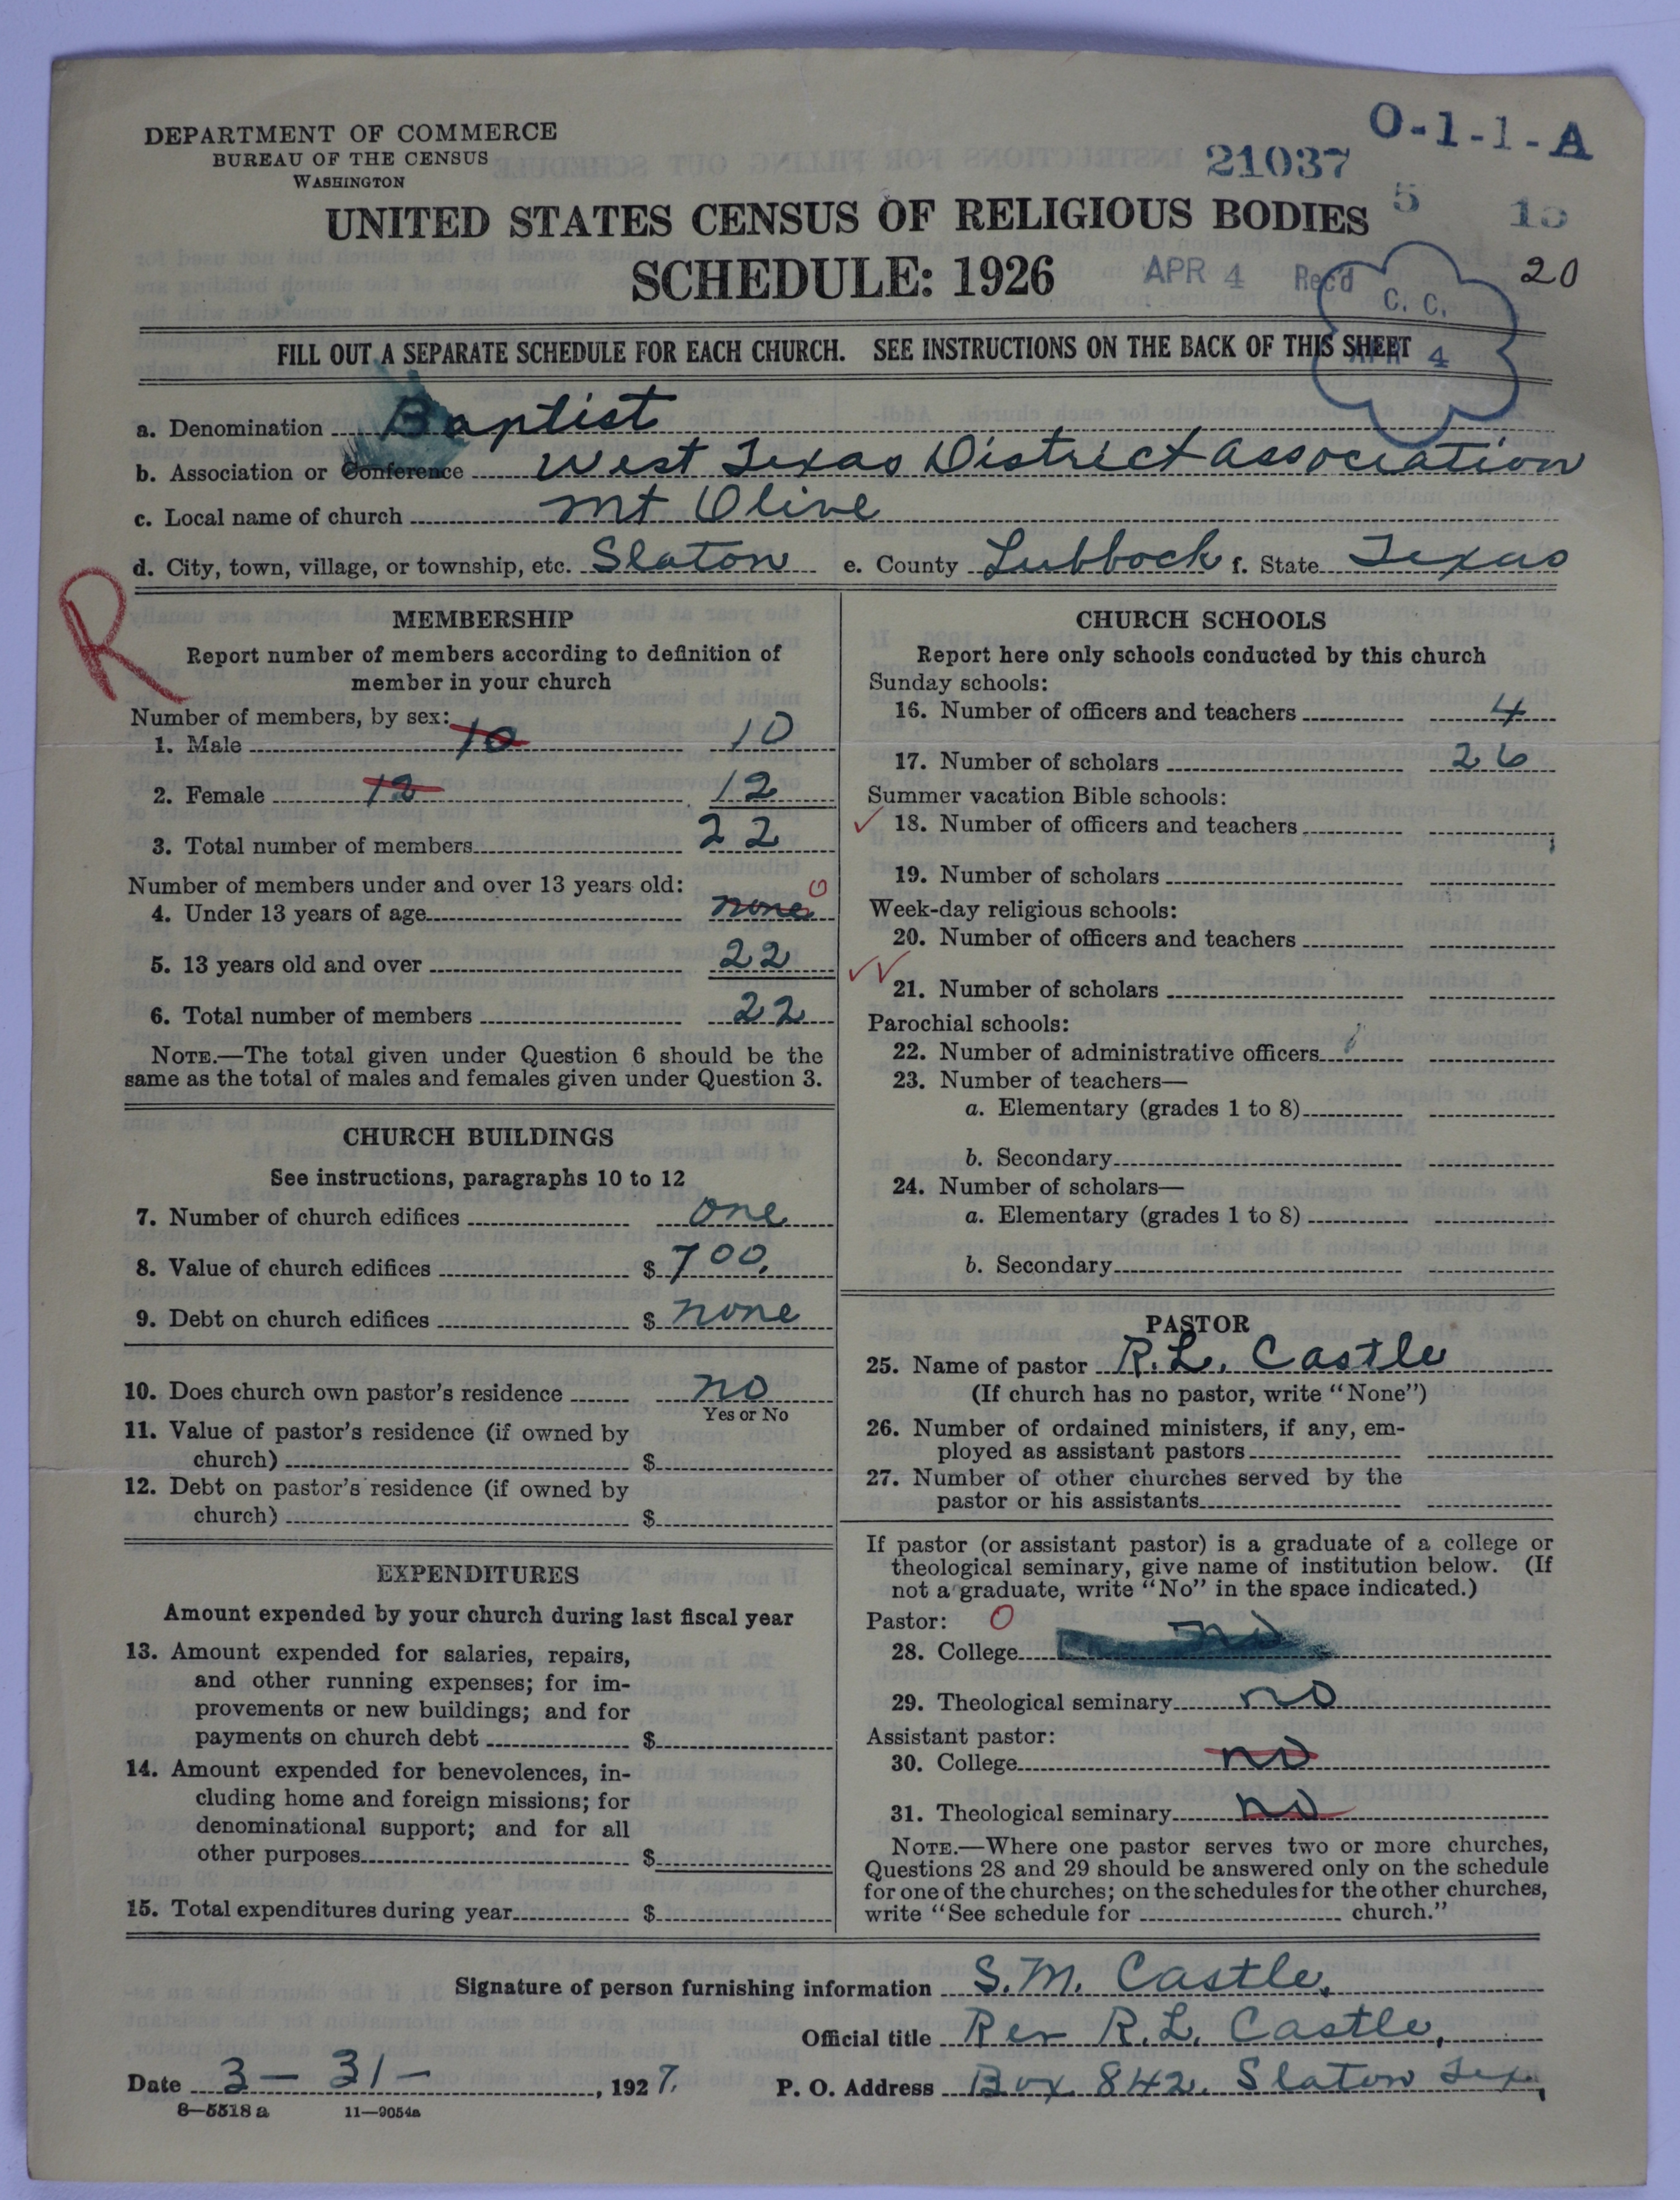 DEPARTMENT OF COMMERCE
BUREAU OF THE CENSUS
WASHINGTON
O-1-1-A
21037
UNITED STATES CENSUS OF RELIGIOUS BODIES
5
SCHEDULE: 1926
APR 4 Rec'd
C. C.
20
FILL OUT A SEPARATE SCHEDULE FOR EACH CHURCH. SEE INSTRUCTIONS ON THE BACK OF THIS SHEET
APR 4
a. Denomination Baptist
b. Association or Conference West Texas District association
c. Local name of church Mt Olive
d. City, town, village, or township, etc. Slaton e. County Lubbock f. State Texas
R
MEMBERSHIP
Report number of members according to definition of
member in your church
Number of members, by sex:
1. Male 10 10
2. Female 12 12
3. Total number of members 22
Number of members under and over 13 years old:
4. Under 13 years of age none 0
5. 13 years old and over 22
6. Total number of members 22
NOTE.—The total given under Question 6 should be the
same as the total of males and females given under Question 3.
CHURCH BUILDINGS
See instructions, paragraphs 10 to 12
7. Number of church edifices one
8. Value of church edifices $ 700.
9. Debt on church edifices $ none
10. Does church own pastor's residence no
Yes or No
11. Value of pastor's residence (if owned by
church) $
12. Debt on pastor's residence (if owned by
church) $
EXPENDITURES
Amount expended by your church during last fiscal year
13. Amount expended for salaries, repairs,
and other running expenses; for im-
provements or new buildings; and for
payments on church debt $
14. Amount expended for benevolences, in-
cluding home and foreign missions; for
denominational support; and for all
other purposes $
15. Total expenditures during year $
CHURCH SCHOOLS
Report here only schools conducted by this church
Sunday schools:
16. Number of officers and teachers 4
17. Number of scholars 26
Summer vacation Bible schools:
18. Number of officers and teachers
19. Number of scholars
Week-day religious schools:
20. Number of officers and teachers
21. Number of scholars
Parochial schools:
22. Number of administrative officers
23. Number of teachers—
a. Elementary (grades 1 to 8)
b. Secondary
24. Number of scholars—
a. Elementary (grades 1 to 8)
b. Secondary
PASTOR
25. Name of pastor R.L. Castle
(If church has no pastor, write "None")
26. Number of ordained ministers, if any, em-
ployed as assistant pastors
27. Number of other churches served by the
pastor or his assistants
If pastor (or assistant pastor) is a graduate of a college or
theological seminary, give name of institution below. (If
not a graduate, write "No" in the space indicated.)
Pastor: 0
28. College no
29. Theological seminary no
Assistant pastor:
30. College no
31. Theological seminary no
NOTE.—Where one pastor serves two or more churches,
Questions 28 and 29 should be answered only on the schedule
for one of the churches; on the schedules for the other churches,
write "See schedule for church."
Signature of person furnishing information S.M. Castle,
Official title Rev R.L. Castle,
Date 3 - 31 - , 1927. P. O. Address Box 842. Slaton Tex,
8—5518 a 11—9054a